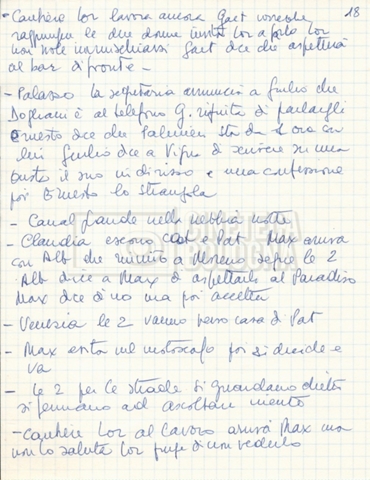 18
- Cantiere Lor lavora ancora Gaet vorrebbe
raggiungere le due donne invita Lor a farlo Lor
non vuole Gaet dice che aspetterà
al bar di fronte -
- Palazzo la segretaria annuncia a Giulio che
è al telefono G. rifiuta di parlargli
Ernesto dice che Palmieri sta da 1 ora con
lui Giulio dice a di scrivere su una
busta il suo indirizzo e una confessione
poi Ernesto lo strangola
- Canal Grande nella nebbia notte
- Claudia escono Cat e Pat Max arriva
con Alb che a Moreno segue le 2
Alb dice a Max di aspettarlo al Paradiso
Max dice di no ma poi accetta
- Venezia le 2 vanno verso casa di Pat
- Max esita nel motoscafo poi si decide e
va
- le 2 per le strade si guardano dietro
si fermano ad ascoltare niente
- Cantiere Lor al lavoro arriva Max ma
non lo saluta Lor finge di non vederlo